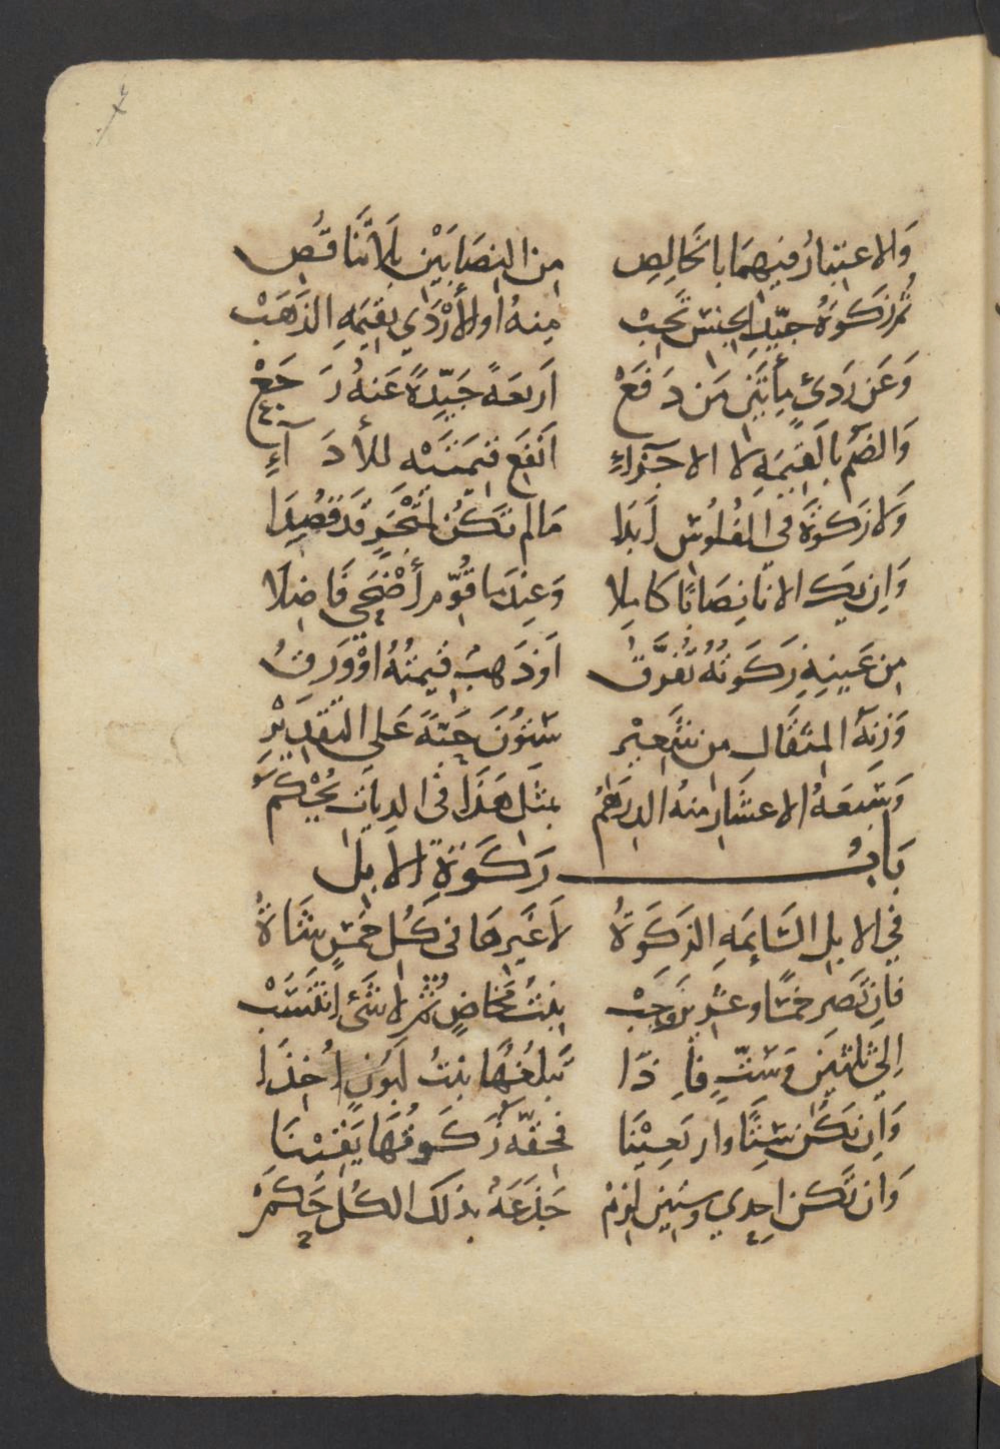 وَالاعتِبَارُ فيهِمَا بالخَالِصِ    مِن النِصَابَيْنِ بِلَا تَنَاقُصِ
ثُمَّ زَكَوةُ جيّدِ الجِنسِ تَجِبْ    مِنهُ اَو الأَرْدَي بقِيمَةِ الذَهَبْ
وَعَن رَدئٍ مِأتَيَنِ مَن دَفَعْ    اَربعَةً جَيّدِةً عَنهُ رَجَعْ
وَالضَمُّ بالقِيمَةِ لا الاجزَاءِ    اَنفَع قيمَتَيْهِ للأَدَآءِ
وَلا زكَوةَ في الفُلُوسِ اَبَدَا    مَالم تَكُن لمَتْجَرٍ قَد قصُدَا
وَاِن يَك الانَا نِصَابًا كامِلا    وَعِندَما قُوّم أضْحَي فَاضِلَا
مِن عَينِهِ زَكَوتُهُ تُفَرَّقُ    اَو ذَهبٌ قيمتُهُ اَوْ وَرقُ
وَزنةُ المِثقَال من شَعِيْرِ    ستّونَ حَبّةً عَلى التَقدِيْرِ
وَسَبعَةُ الاعشَارِ منهُ الدِرهَمُ    بمثلِ هَذَا في الدِيَاتِ يُحْكَمُ
بَابُ زكَوةِ الابِلِ
في الابلِ السَائِمَةِ الزكَوةُ    لا غَيرِهَا في كُل خَمسٍ شَاةُ
فاِن تَصر خمسًا وعشرِيَن وَجَبْ    بِنتُ مَخَاضٍ ثُمّ لا شَئ اِنتَسَبْ
اِلَي ثلثيَن وَستٍّ فاِذَا    تَبلغُهَا بنتُ لَبُونٍ اُخِذَا
وَاِن تَكُن سِتًا وَاربَعِيْنَا    فحِقّةٌ زكَوتُهَا يَقِيْنَا
وَان تَكن اِحدي وستِين لَزِمْ    جَذَعَةٌ بذلك الكُلّ حَكَمْ